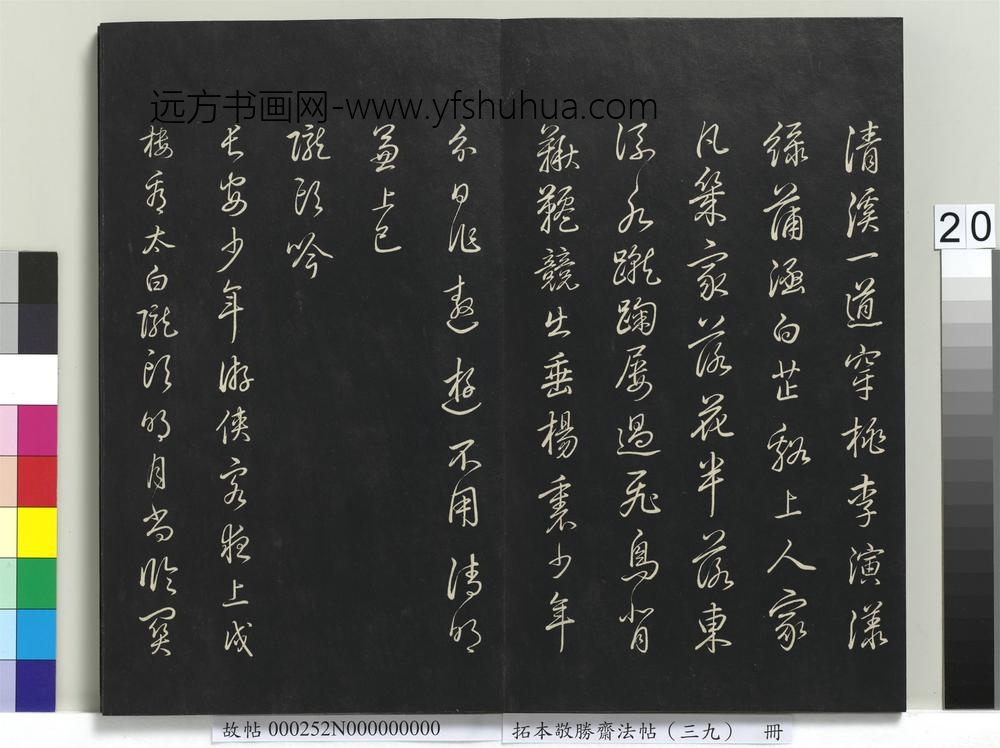 远方书画网-www.yfshuhua.com
清溪一道穿桃李演漾
綠蒲涵白芷谿上人家
凡幾家落花半落東
流水蹴踘屢過飛鳥背
鞦韆競出垂楊裏少年
分日作遨遊不用清明
兼上巳
隴頭吟
長安少年游俠客夜上戍
樓看太白隴頭明月迥臨關
20
故帖 000252N000000000
拓本敬勝齋法帖（三九） 冊